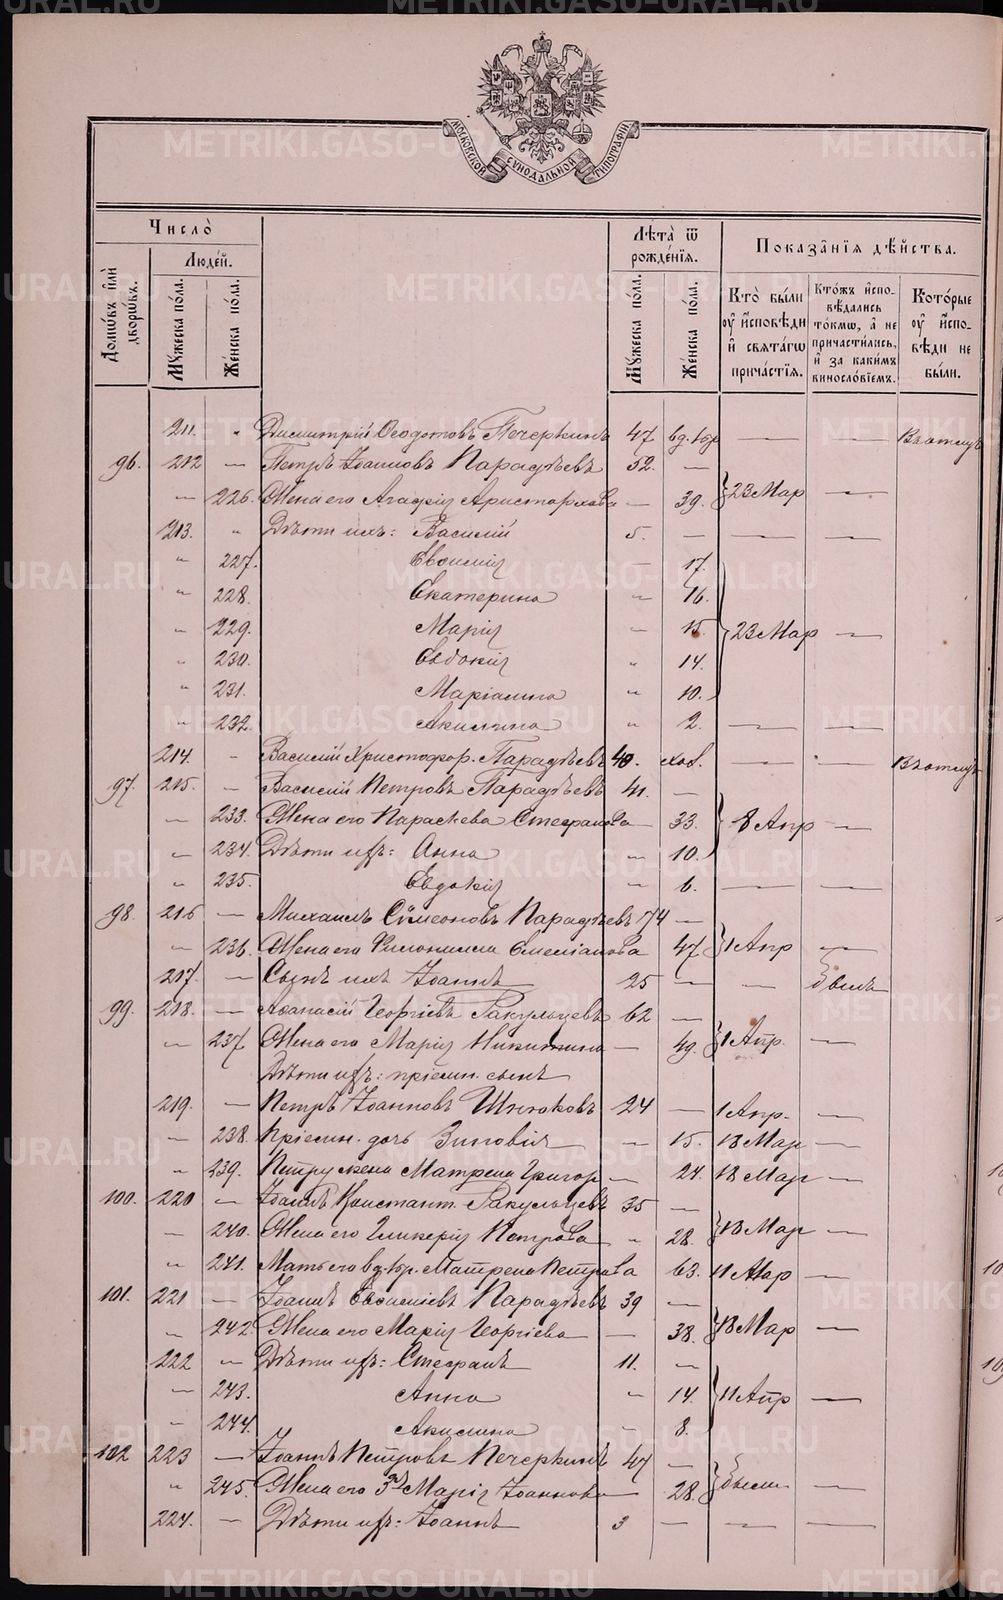 МОСКОВСКОЙ СѴНОДАЛЬНОЙ ТИПОГРАФІИ
Число̀
Домѡ́въ и҆лѝ дворѡ́въ.
Люде́й.
Мꙋ́жеска по́ла.
Же́нска по́ла.
Лѣ́та ѿ рожде́нїѧ.
Мꙋ́жеска по́ла.
Же́нска по́ла.
Показа̑нїѧ дѣ́йства.
Кто̀ бы́ли ᲂу҆ и҆сповѣ́ди и҆ свѧта́гѡ прича́стїѧ.
Кто́жъ и҆спо-вѣ́дались то́кмѡ, а҆ не причасти́лись, и҆ за каки́мъ винослѡ́вїемъ.
Кото́рые ᲂу҆ и҆спо-вѣ́ди не бы́ли.
211. " Димитрій Ѳеодотовъ Печеркинъ 47 — — Въ отлуч
96. 212 — Петръ Іоанновъ Парадѣевъ 52. —
" 226. Жена его Агафія Аристархова — 39. 23 Мар —
213. " Дѣти ихъ: Василій 5. — — —
" 227. Евѳимія — 17.
" 228. Екатерина " 16.
" 229. Марія " 15. 23 Мар —
" 230. Евдокія " 14.
" 231. Маріамна " 10.
" 232. Акилина " 2. — —
214. " Василій Христофор. Парадѣевъ 40. хол. — — Въ отлуч
97. 215. — Василій Петровъ Парадѣевъ 41. —
" 233. Жена его Параскева Стефанова — 33. 8 Апр —
" 234. Дѣти ихъ: Анна " 10.
" 235. Евдокія " 6. — —
98. 216 — Михаилъ Сѵмеоновъ Парадѣевъ 74 —
" 236. Жена его Филонилла Емеліанова 47 1 Апр —
217. — Сынъ ихъ Іоаннъ 25 — — былъ
99. 218. — Аѳанасій Георгіевъ Ракульцевъ 62 —
" 237. Жена его Марія Никитина — 49. 1 Апр. —
Дѣти ихъ: пріемн. сынъ
219. — Петръ Іоанновъ 24 — 1 Апр. —
" 238. Пріемн. дочь Зиновія — 15. 18 Мар —
" 239. Петру жена Матрена Григор — 24. 18 Мар —
100. 220 — Іоаннъ Констант. Ракульцевъ 35 —
" 240. Жена его Гликерія Петрова " 28. 18 Мар —
" 241. Мать его вд. Матрена Петрова 63. 11 Мар —
101. 221 — Іоаннъ Парадѣевъ 39 —
" 242. Жена его Марія Георгіева — 38. 18 Мар —
222 " Дѣти ихъ: Стефанъ 11. —
" 243. Анна " 14. 11 Апр —
" 244. Акилина — 8.
102 223 — Іоаннъ Петровъ Печеркинъ 47 —
" 245. Жена его Марія Іоаннова — 28. были —
224. — Дѣти ихъ: Іоаннъ 3 — — —
METRIKI.GASO-URAL.RU